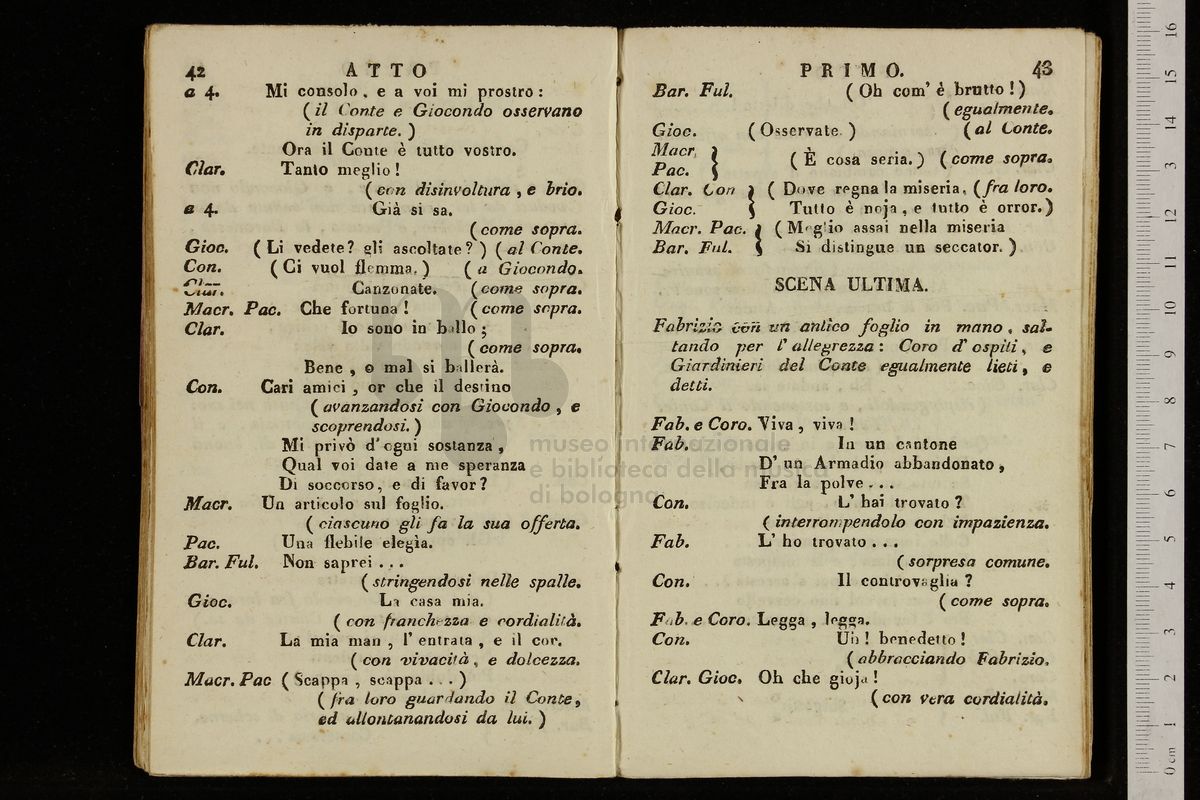 42 ATTO
a 4. Mi consolo, e a voi mi prostro :
( il Conte e Giocondo osservano
in disparte. )
Ora il Conte è tutto vostro.
Clar. Tanto meglio !
( con disinvoltura , e brio.
a 4. Già si sa.
( come sopra.
Gioc. ( Li vedete? gli ascoltate? ) ( al Conte.
Con. ( Ci vuol flemma. ) ( a Giocondo.
Clar. Canzonate. ( come sopra.
Macr. Pac. Che fortuna ! ( come sopra.
Clar. Io sono in ballo ;
( come sopra.
Bene , o mal si ballerà.
Con. Cari amici , or che il destino
( avanzandosi con Giocondo , e
scoprendosi. )
Mi privò d' ogni sostanza ,
Qual voi date a me speranza
Di soccorso, e di favor?
Macr. Un articolo sul foglio.
( ciascuno gli fa la sua offerta.
Pac. Una flebile elegia.
Bar. Ful. Non saprei . . .
( stringendosi nelle spalle.
Gioc. La casa mia.
( con franchezza e cordialità.
Clar. La mia man , l' entrata , e il cor.
( con vivacità , e dolcezza.
Macr. Pac ( Scappa , scappa . . . )
( fra loro guardando il Conte,
ed allontanandosi da lui. )
PRIMO. 43
Bar. Ful. ( Oh com' è brutto ! )
( egualmente.
Gioc. ( Osservate. ) ( al Conte.
Macr. }
Pac. } ( È cosa seria. ) ( come sopra.
Clar. Con } ( Dove regna la miseria, (fra loro.
Gioc. } Tutto è noja , e tutto è orror.)
Macr. Pac. } ( Meglio assai nella miseria
Bar. Ful. } Si distingue un seccator. )
SCENA ULTIMA.
Fabrizio con un antico foglio in mano , sal-
tando per l' allegrezza : Coro d' ospiti , e
Giardinieri del Conte egualmente lieti , e
detti.
Fab. e Coro. Viva , viva !
Fab. In un cantone
D' un Armadio abbandonato ,
Fra la polve . . .
Con. L' hai trovato ?
( interrompendolo con impazienza.
Fab. L' ho trovato . . .
( sorpresa comune.
Con. Il controvaglia ?
( come sopra.
Fab. e Coro. Legga , legga.
Con. Uh ! benedetto !
( abbracciando Fabrizio.
Clar. Gioc. Oh che gioja !
( con vera cordialità.
museo internazionale
e biblioteca della musica
di bologna
0 cm 1 2 3 4 5 6 7 8 9 10 11 12 13 14 15 16